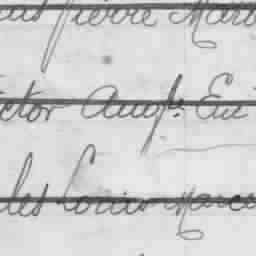 Pierre Mar
ctor Augte Eu
les Louis Marce